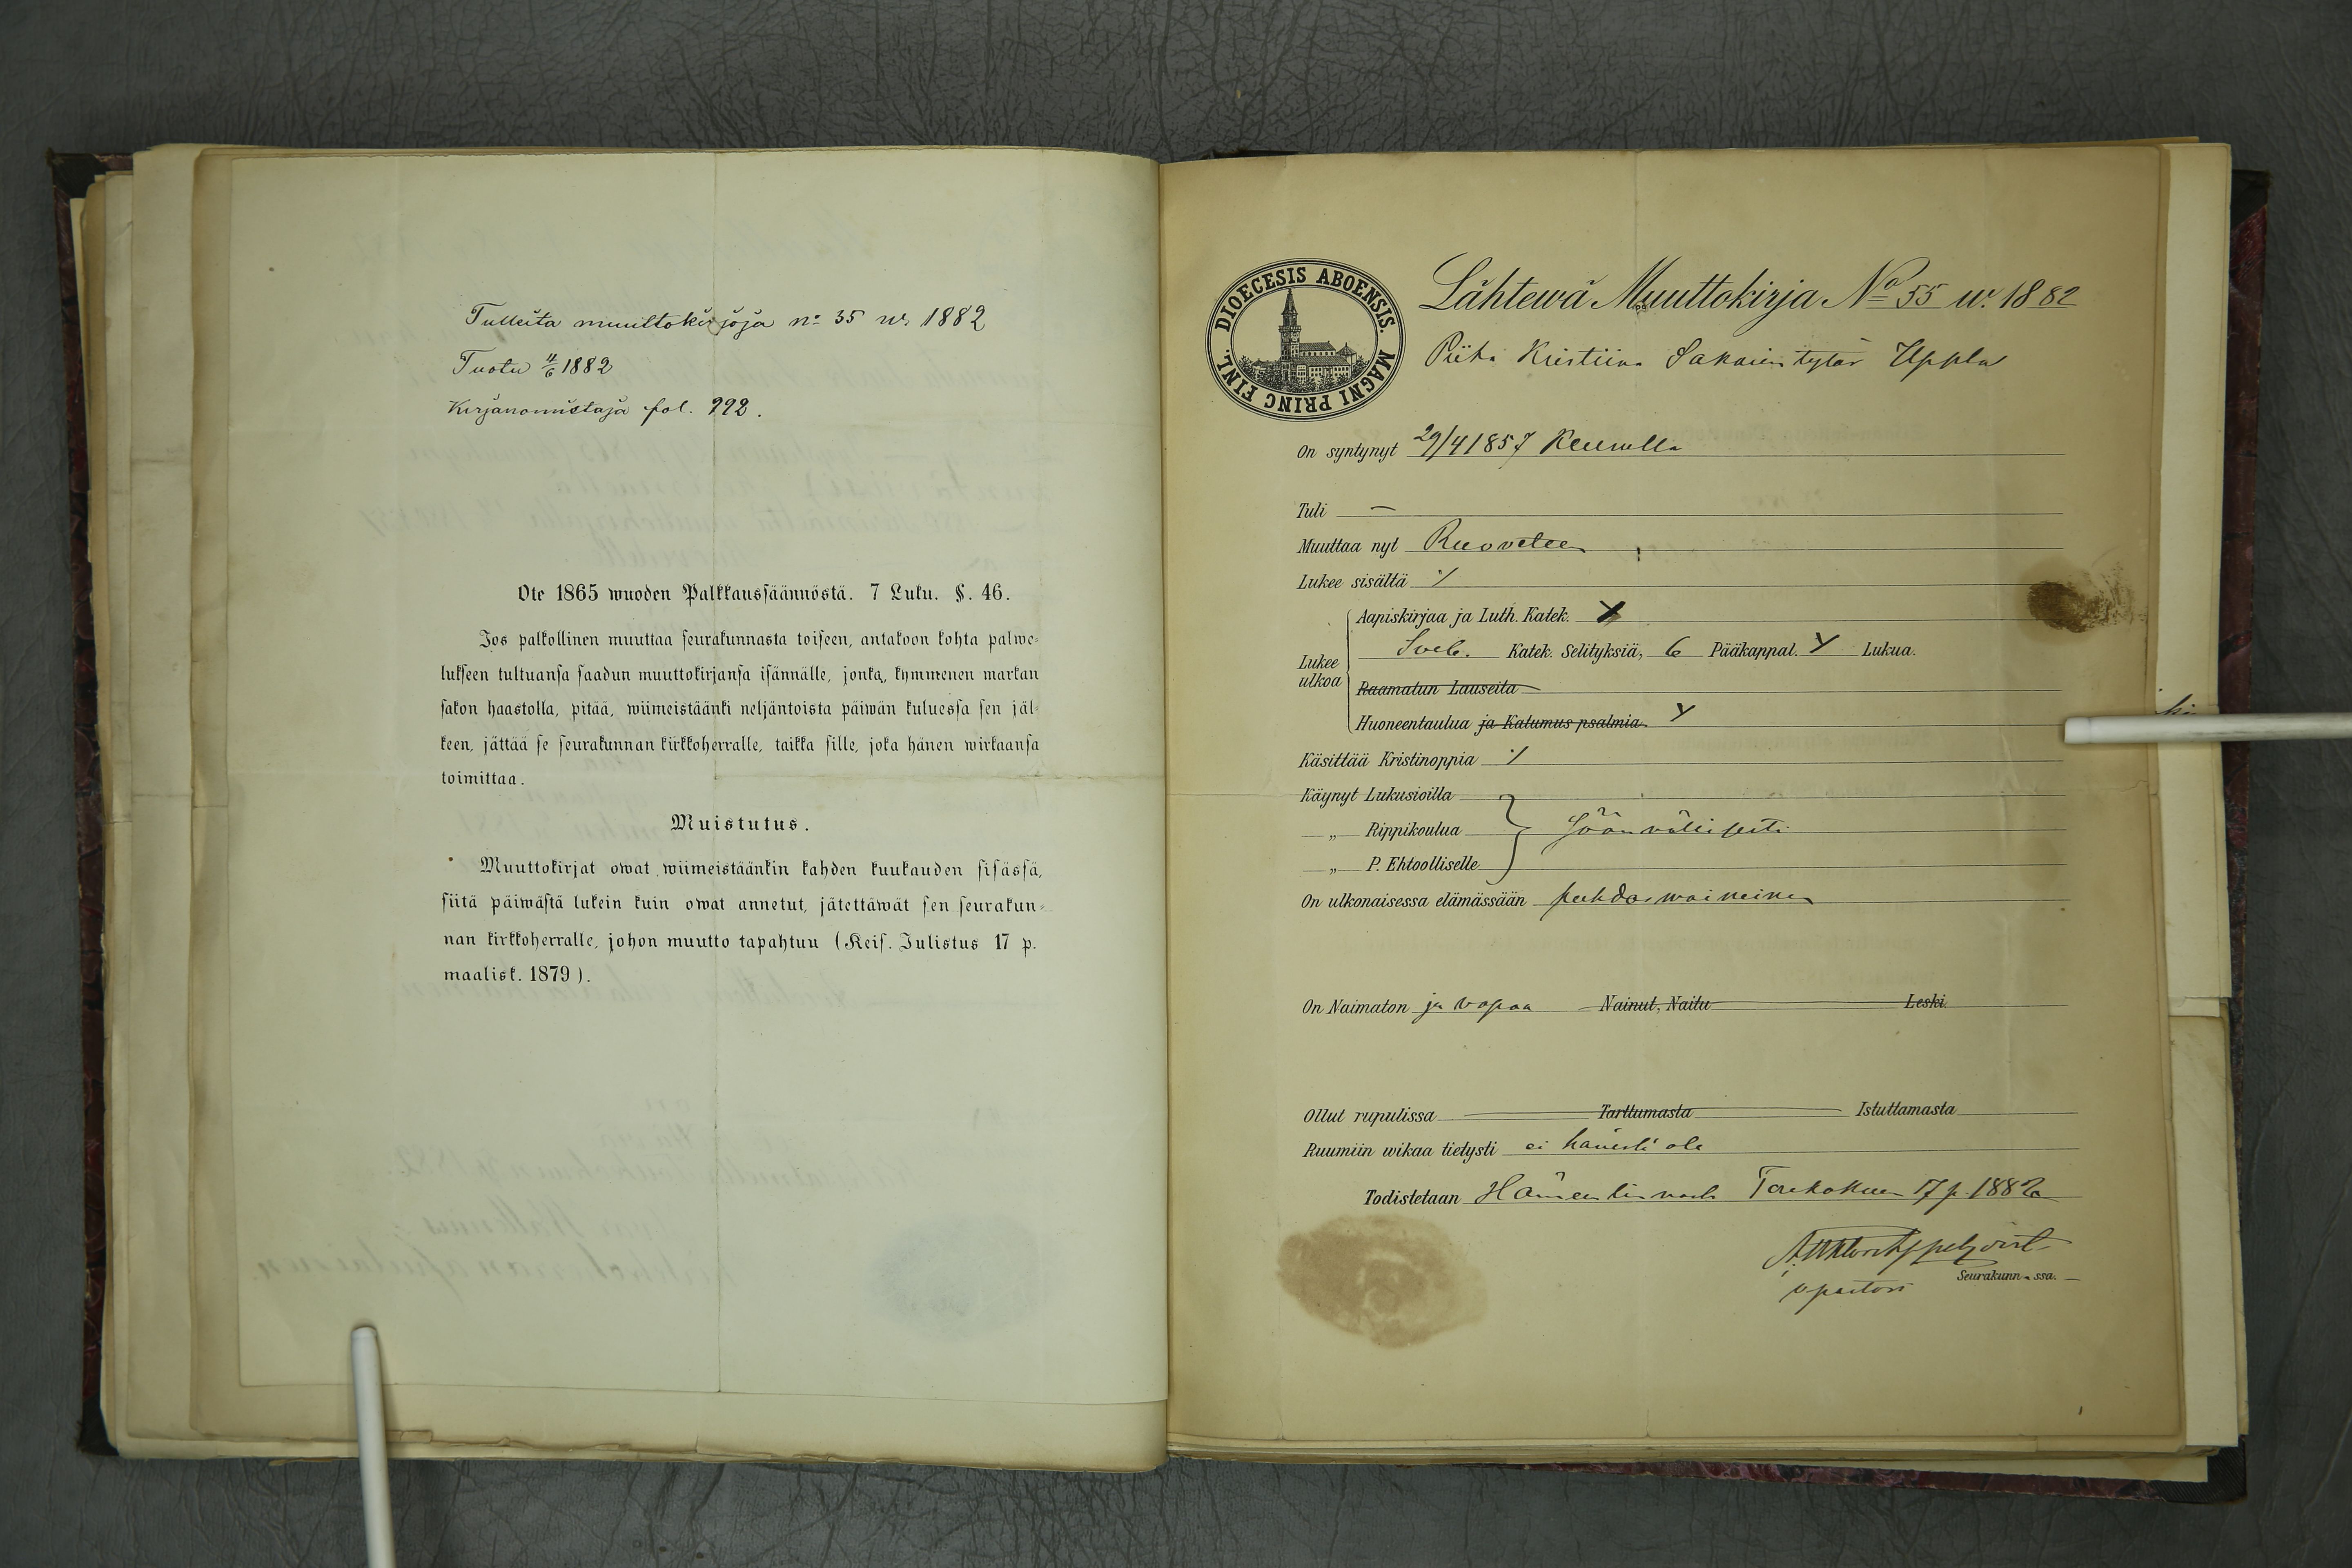 Tulleita muuttokirjoja n:o 35 w. 1882
Tuotu 4/6 1882
Kirjanomistaja fol. 992.
Ote 1865 wuoden Palkkaussäännöstä. 7 Luku. §. 46.
Jos palkollinen muuttaa seurakunnasta toiseen, antakoon kohta palwe-
lukseen tultuansa saadun muuttokirjansa isännälle, jonka, kymmenen markan
sakon haastolla, pitää, wiimeistäänki neljäntoista päiwän kuluessa sen jäl-
keen, jättää se seurakunnan kirkkoherralle, taikka sille, joka hänen wirkaansa
toimittaa.
Muistutus.
Muuttokirjat owat wiimeistäänkin kahden kuukauden sisässä,
siitä päiwästä lukein kuin owat annetut, jätettäwät sen seurakun-
nan kirkkoherralle, johon muutto tapahtuu (Keis. Julistus 17 p.
maalisk. 1879).
DIOECESIS ABOENSIS. MAGNI PRINC FINL.
Lähtewä Muuttokirja No 55 w. 1882
Piika Kristiina Sakarin tytär Uppla
On syntynyt 29/4 1857 Keuruulla
Tuli —
Muuttaa nyt Ruoveteen
Lukee sisältä ·/
Aapiskirjaa ja Luth. Katek.
Lukee ulkoa
Sveb. Katek. Selityksiä, 6 Pääkappal. Y Lukua.
Raamatun Lauseita
Huoneentaulua ja Katumus psalmia. Y
Käsittää Kristinoppia ·/
Käynyt Lukusioilla
„ Rippikoulua Säänvälisesti
„ P. Ehtoolliselle
On ulkonaisessa elämässään puhdasmaineinen
On Naimaton ja vapaa Nainut, Naitu Leski.
Ollut rupulissa Tarttumasta Istuttamasta
Ruumiin wikaa tietysti ei hänesti ole
Todistetaan Hämeenlinnasta Toukokuun 17 p. 1882
Seurakunn-ssa.
v pastori